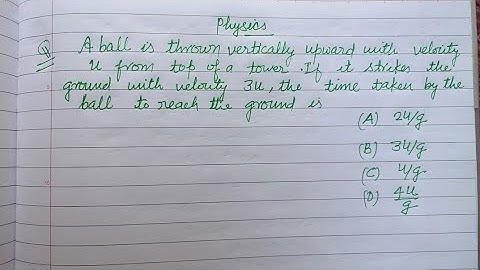 Physics
Q A ball is thrown vertically upward with velocity
u from top of a tower. If it strikes the
ground with velouity 3u, the time taken by the
ball to reach the ground is
(A) 2u/g
(B) 3u/g
(C) u/g
(D) 4u/g